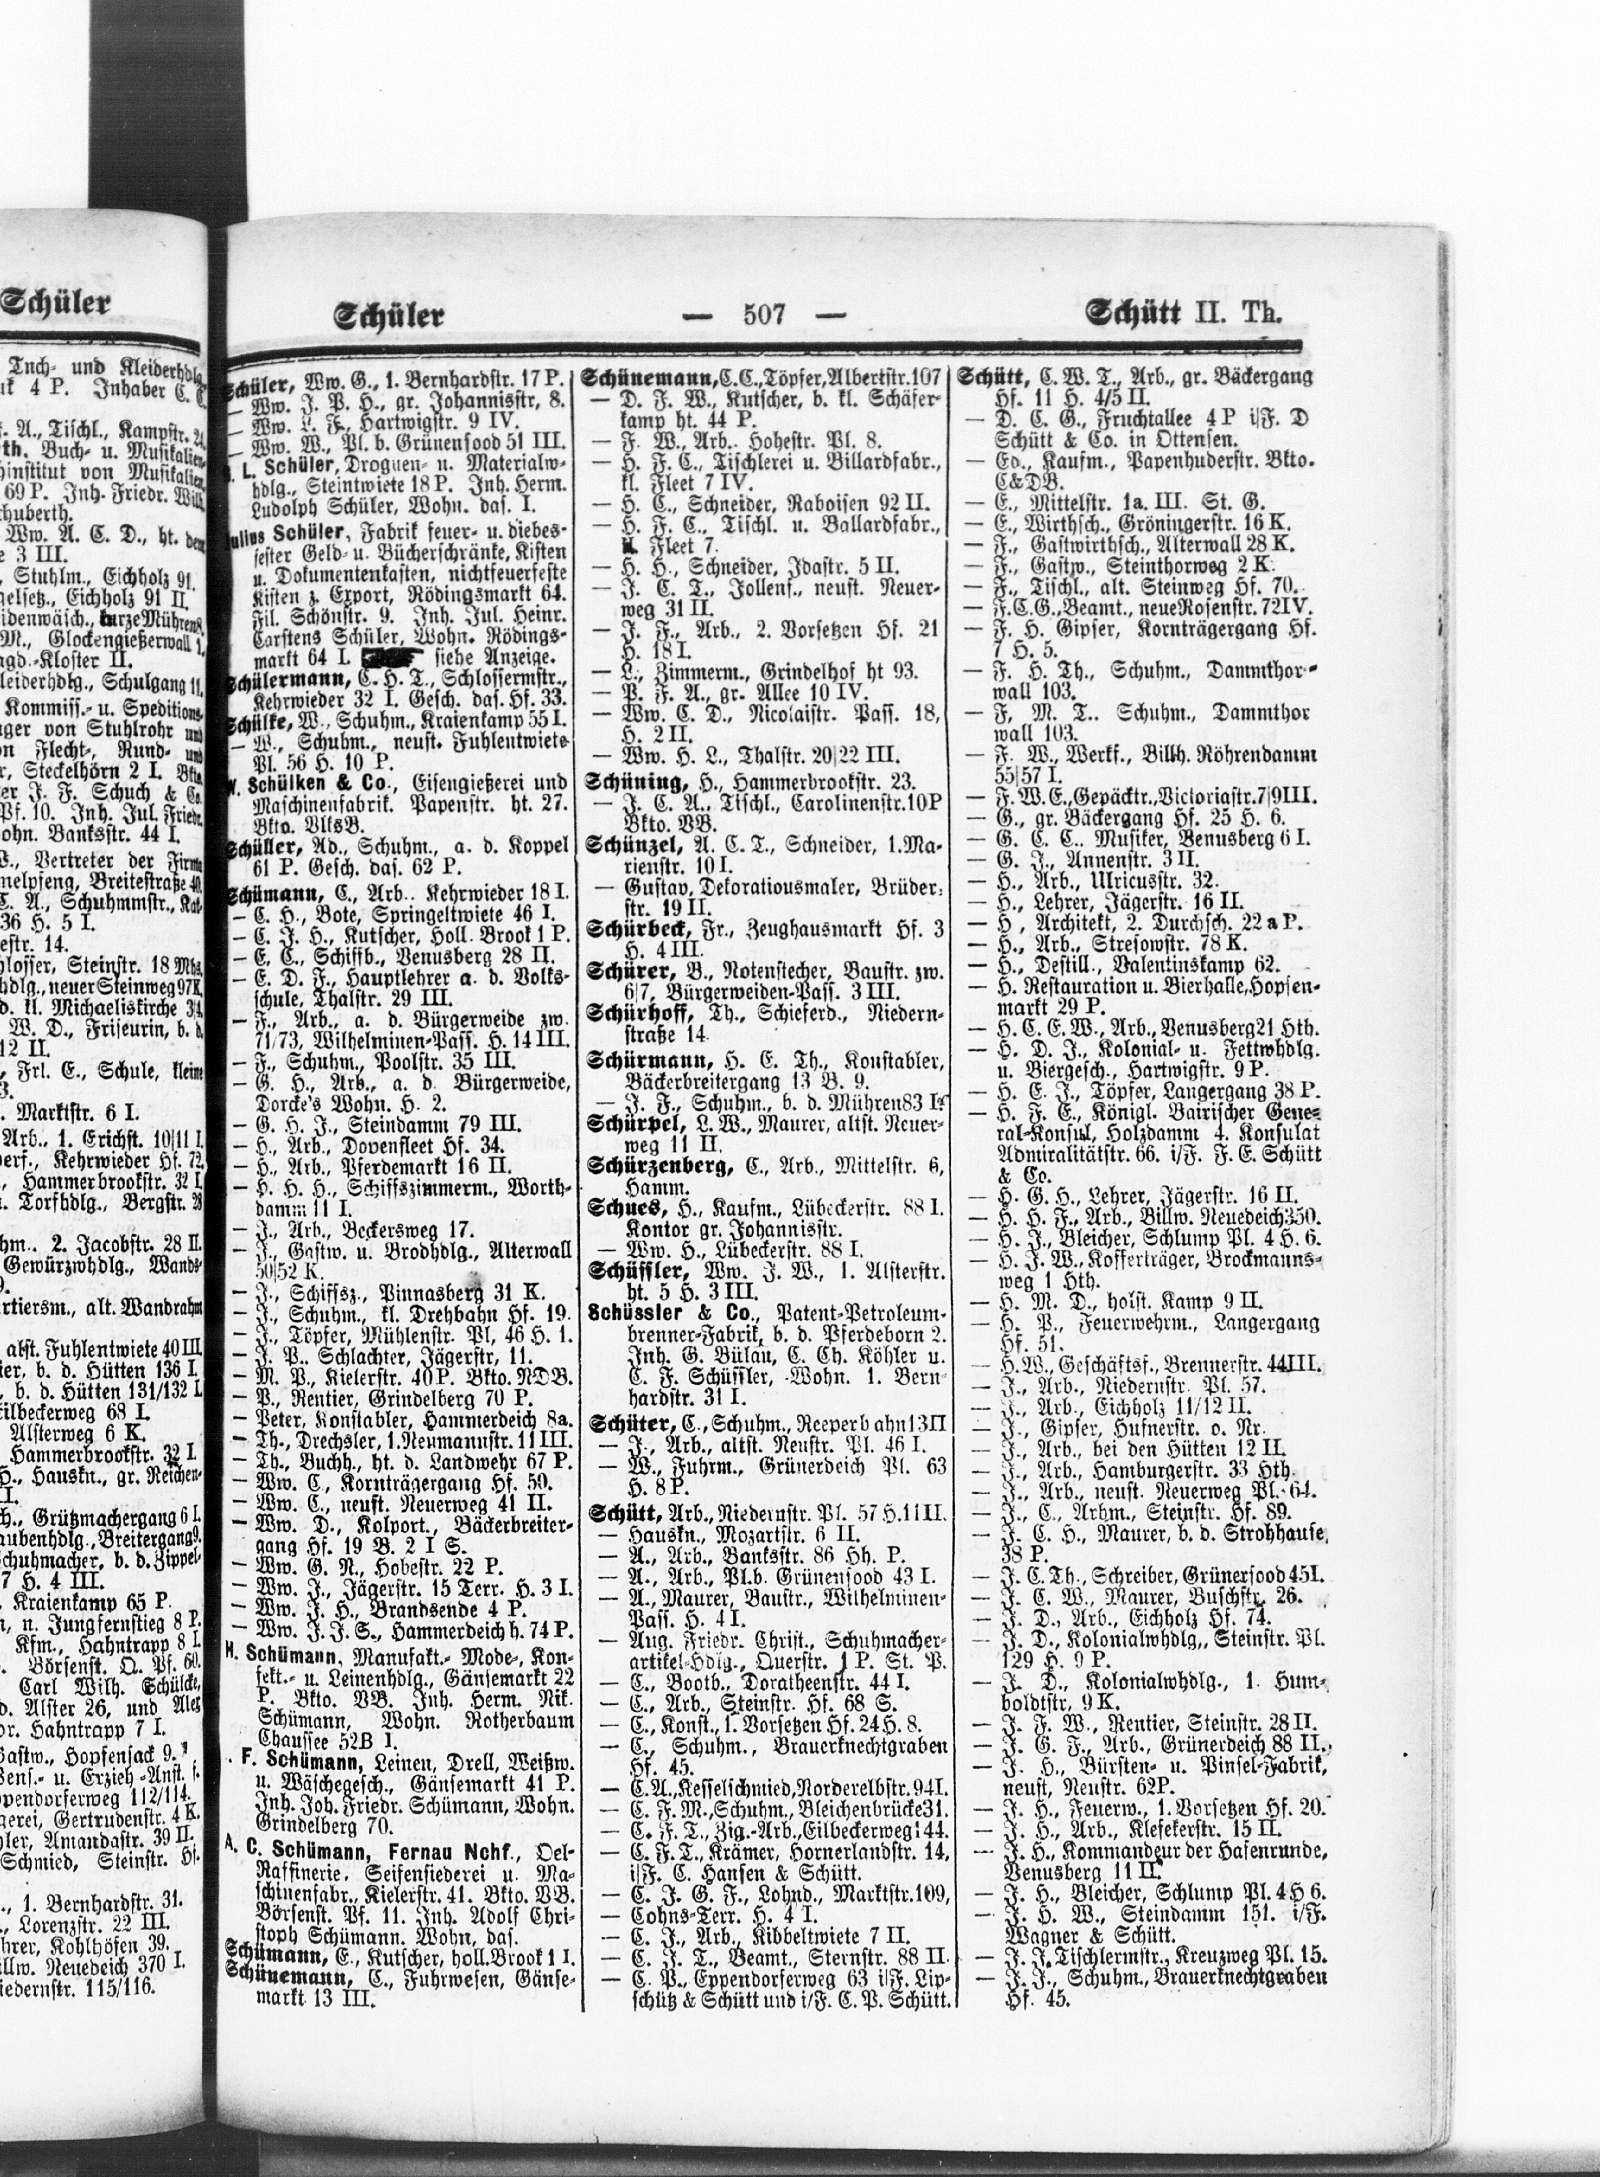 Schüler
Tuch- und Kleiderhdlg.
4 P. Inhaber C.
A., Tischl., Kampstr. 24.
th. Buch- u. Musikalien-
institut von Musikalien.
69 P. Inh. Friedr. Wilh.
huberth.
Ww. A. C. D., ht. dem
e 3 III.
, Stuhlm., Eichholz 91.
gelsetz., Eichholz 91 II.
idenwäsch., kurze Mühren 8.
M., Glockengießerwall 1.
agd.-Kloster II.
leiderhdlg., Schulgang 11.
Kommiss.- u. Speditions-
ger von Stuhlrohr und
n Flecht-, Rund- und
r, Steckelhörn 2 I. Bkto.
er J. F. Schuch & Co.
Pf. 10. Inh. Jul. Friedr.
ohn. Banksstr. 44 I.
, Vertreter der Firma
melpfeng, Breitestraße 40.
C. A., Schuhmmstr., Kai-
36 H. 5 I.
estr. 14.
hlosser, Steinstr. 18 Mhs.
hdlg., neuer Steinweg 97 K.
d. kl. Michaeliskirche 3/4.
W. D., Friseurin, b. d.
12 II.
, Frl. E., Schule, kleine
3.
. Marktstr. 6 I.
Arb., 1. Erichst. 10/11 I.
erf., Kehrwieder Hf. 72.
, Hammerbrookstr. 32 I.
. Torfhdlg., Bergstr. 28
hm.. 2. Jacobstr. 28 II.
Gewürzwhdlg., Wands-
9.
rtiersm., alt. Wandrahm
altst. Fuhlentwiete 40 III
ier, b. d. Hütten 136 I.
, b. d. Hütten 131/132 I.
ilbeckerweg 68 I.
Alsterweg 6 K.
Hammerbrookstr. 32 I.
H., Hauskn., gr. Reichen-
I.
ch., Grützmachergang 6 I.
aubenhdlg., Breitergang 9.
chuhmacher, b. d. Zippel-
7 H. 4 III.
, Kraienkamp 65 P.
n, n. Jungfernstieg 8 P.
Kfm., Hahntrapp 8 I.
. Börsenst. O. Pf. 60.
Carl Wilh. Schülcke,
d. Alster 26, und Alex
or. Hahntrapp 7 I.
Gastw., Hopfensack 9.
ens.- u. Erzieh.-Anst. s.
ppendorferweg 112/114.
gerei, Gertrudenstr. 4 K.
ler, Amandastr. 39 II.
Schmied, Steinstr. Hf.
., 1. Bernhardstr. 31.
., Lorenzstr. 22 III.
hrer, Kohlhöfen 39.
illw. Neuedeich 370 I.
iedernstr. 115/116.
Schüler — 507 — Schütt II. Th.
Schüler, Ww. G., 1. Bernhardstr. 17 P.
— Ww. J. P. H., gr. Johannisstr, 8.
— Ww. L. F., Hartwigstr. 9 IV.
— Ww. W., Pl. b. Grünensood 51 III.
L. Schüler, Droguen- u. Materialw-
hdlg., Steintwiete 18 P. Inh. Herm.
Ludolph Schüler, Wohn. das. I.
Julius Schüler, Fabrik feuer- u. diebes-
fester Geld- u. Bücherschränke, Kisten
u. Dokumentenkasten, nichtfeuerfeste
Kisten z. Export, Rödingsmarkt 64.
Fil. Schönstr. 9. Inh. Jul. Heinr.
Carstens Schüler, Wohn. Rödings-
markt 64 I. siehe Anzeige.
Schülermann, C. H. T., Schlossermstr.,
Kehrwieder 32 I. Gesch. das. Hf. 33.
Schülke, W., Schuhm., Kraienkamp 55 I.
— W., Schuhm., neust. Fuhlentwiete
Pl. 56 H. 10 P.
W. Schülken & Co., Eisengießerei und
Maschinenfabrik. Papenstr. ht. 27.
Bkto. VlksB.
Schüller, Ad., Schuhm., a. d. Koppel
61 P. Gesch. das. 62 P.
Schümann, C., Arb.. Kehrwieder 18 I.
— C. H., Bote, Springeltwiete 46 I.
— C. J. H., Kutscher, Holl. Brook 1 P.
— E. C., Schiffb., Venusberg 28 II.
— E. D. F., Hauptlehrer a. d. Volks-
schule, Thalstr. 29 III.
— F., Arb., a. d. Bürgerweide zw.
71/73, Wilhelminen-Pass. H. 14 III.
— F., Schuhm., Poolstr. 35 III.
— G. H., Arb., a. d. Bürgerweide,
Dorcke's Wohn. H. 2.
— G. H. J., Steindamm 79 III.
— H., Arb., Dovenfleet Hf. 34.
— H., Arb., Pferdemarkt 16 II.
— H. H. H., Schiffszimmerm., Worth-
damm 11 I.
— J., Arb., Beckersweg 17.
— J., Gastw. u. Brodhdlg., Alterwall
50/52 K.
— J., Schiffsz., Pinnasberg 31 K.
— J., Schuhm., kl. Drehbahn Hf. 19.
— J., Töpfer, Mühlenstr. Pl, 46 H. 1.
— J. P.. Schlachter, Jägerstr, 11.
— M. P., Kielerstr. 40 P. Bkto. NDB.
— P., Rentier, Grindelberg 70 P.
— Peter, Konstabler, Hammerdeich 8a.
— Th., Drechsler, 1. Neumannstr. 11 III.
— Th., Buchh., ht. d. Landwehr 67 P.
— Ww. C., Kornträgergang Hf. 59.
— Ww. C., neust. Neuerweg 41 II.
— Ww. D., Kolport., Bäckerbreiter-
gang Hf. 19 B. 2 I S.
— Ww. G. N., Hohestr. 22 P.
— Ww. J., Jägerstr. 15 Terr. H. 3 I.
— Ww. J. H., Brandsende 4 P.
— Ww. J. J. S., Hammerdeich h. 74 P.
H. Schümann, Manufakt.- Mode-, Kon-
fekt.- u. Leinenhdlg., Gänsemarkt 22
P. Bkto. VB. Inh. Herm. Nik.
Schümann, Wohn. Rotherbaum
Chaussee 52B I.
. F. Schümann, Leinen, Drell, Weißw.
u. Wäschegesch., Gänsemarkt 41 P.
Inh. Joh. Friedr. Schümann, Wohn.
Grindelberg 70.
A. C. Schümann, Fernau Nchf., Oel-
Raffinerie. Seifensiederei u. Ma-
schinenfabr., Kielerstr. 41. Bkto. VB.
Börsenst. Pf. 11. Inh. Adolf Chri-
stoph Schümann. Wohn, das.
Schümann, E., Kutscher, holl. Brook 1 I.
Schünemann, C., Fuhrwesen, Gänse-
markt 13 III.
Schünemann, C. C., Töpfer, Albertstr. 107
— D. F. W., Kutscher, b. kl. Schäfer-
kamp ht. 44 P.
— F. W., Arb.. Hohestr. Pl. 8.
— H. F. C., Tischlerei u. Billardfabr.,
kl. Fleet 7 IV.
— H. C., Schneider, Raboisen 92 II.
— H. F. C., Tischl. u. Ballardfabr.,
kl. Fleet 7.
— H. H., Schneider, Idastr. 5 II.
— J. C. T., Jollenf., neust. Neuer-
weg 31 II.
— J. F., Arb., 2. Vorsetzen Hf. 21
H. 18 I.
— L., Zimmerm., Grindelhof ht 93.
— P. F. A., gr. Allee 10 IV.
— Ww. C. D., Nicolaistr. Pass. 18,
H. 2 II.
— Ww. H. L., Thalstr. 20/22 III.
Schüning, H., Hammerbrookstr. 23.
— J. C. A., Tischl., Carolinenstr. 10 P
Bkto. VB.
Schünzel, A. C. T., Schneider, 1. Ma-
rienstr. 10 I.
— Gustav, Dekorationsmaler, Brüder-
str. 19 II.
Schürbeck, Fr., Zeughausmarkt Hf. 3
H. 4 III.
Schürer, B., Notenstecher, Baustr. zw.
6/7, Bürgerweiden-Pass. 3 III.
Schürhoff, Th., Schieferd., Niedern-
straße 14.
Schürmann, H. E. Th., Konstabler,
Bäckerbreitergang 13 B. 9.
— J. F., Schuhm., b. d. Mühren 83 I.
Schürpel, L. W., Maurer, altst. Neuer-
weg 11 II.
Schürzenberg, C., Arb., Mittelstr. 6,
Hamm.
Schues, H., Kaufm., Lübeckerstr. 88 I.
Kontor gr. Johannisstr.
— Ww. H., Lübeckerstr. 88 I.
Schüssler, Ww. J. W., 1. Alsterstr.
ht. 5 H. 3 III.
Schüssler & Co., Patent-Petroleum-
brenner-Fabrik, b. d. Pferdeborn 2.
Inh. G. Bülau, C. Ch. Köhler u.
C. F. Schüssler, Wohn. 1. Bern-
hardstr. 31 I.
Schüter, C., Schuhm., Reeperbahn 13 II
— J., Arb., altst. Neustr. Pl. 46 I.
— W., Fuhrm., Grünerdeich Pl. 63
H. 8 P.
Schütt, Arb., Niedernstr. Pl. 57 H. 11 II.
— Hauskn., Mozartstr. 6 II.
— A., Arb., Banksstr. 86 Hh. P.
— A., Arb., Pl. b. Grünensood 43 I.
— A., Maurer, Baustr., Wilhelminen-
Pass. H. 4 I.
— Aug. Friedr. Christ., Schuhmacher-
artikel-Hdlg., Querstr. 1 P. St. P.
— C., Bootb., Doratheenstr. 44 I.
— C., Arb., Steinstr. Hf. 68 S.
— C., Konst., 1. Vorsetzen Hf. 24 H. 8.
— C., Schuhm., Brauerknechtgraben
Hf. 45.
— C. A., Kesselschmied, Norderelbstr. 94 I.
— C. F. M., Schuhm., Bleichenbrücke 31.
— C. F. T., Zig.-Arb., Eilbeckerweg 144.
— C. F. T., Krämer, Hornerlandstr. 14,
i/F. C. Hansen & Schütt.
— C. J. G. F., Lohnd., Marktstr. 109,
— Cohns-Terr. H. 4 I.
— C. J., Arb., Kibbeltwiete 7 II.
— C. J. T., Beamt., Sternstr. 88 II.
— C. P., Eppendorferweg 63 i/F. Lip-
schütz & Schütt und i/F. C. P. Schütt.
Schütt, C. W. T., Arb., gr. Bäckergang
Hf. 11 H. 4/5 II.
— D. C. G., Fruchtallee 4 P i/F. D
Schütt & Co. in Ottensen.
— Ed., Kaufm., Papenhuderstr. Bkto.
C&DB.
— E., Mittelstr. 1a. III. St. G.
— E., Wirthsch., Gröningerstr. 16 K.
— F., Gastwirthsch., Alterwall 28 K.
— F., Gastw., Steinthorweg 2 K.
— F., Tischl., alt. Steinweg Hf. 70.
— F. C. G., Beamt., neue Rosenstr. 72 IV.
— F. H. Gipser, Kornträgergang Hf.
7 H. 5.
— F. H. Th., Schuhm., Dammthor-
wall 103.
— F, M. T.. Schuhm., Dammthor
wall 103.
— F. W., Werkf., Billh. Röhrendamm
55/57 I.
— F. W. E., Gepäcktr., Victoriastr. 7/9 III.
— G., gr. Bäckergang Hf. 25 H. 6.
— G. C. C.. Musiker, Venusberg 6 I.
— G. J., Annenstr. 3 II.
— H., Arb., Ulricusstr. 32.
— H., Lehrer, Jägerstr. 16 II.
— H , Architekt, 2. Durchsch. 22 a P.
— H., Arb., Stresowstr. 78 K.
— H., Destill., Valentinskamp 62.
— H. Restauration u. Bierhalle, Hopfen-
markt 29 P.
— H. C. E. W., Arb., Venusberg 21 Hth.
— H. D. J., Kolonial- u. Fettwhdlg.
u. Biergesch., Hartwigstr. 9 P.
— H. E. J., Töpfer, Langergang 38 P.
— H. F. E., Königl. Bairischer Gene-
ral-Konsul, Holzdamm 4. Konsulat
Admiralitätstr. 66. i/F. F. E. Schütt
& Co.
— H. G. H., Lehrer, Jägerstr. 16 II.
— H. H. F., Arb., Billw. Neuedeich 350.
— H. J., Bleicher, Schlump Pl. 4 H. 6.
— H. J. W., Kofferträger, Brockmanns-
weg 1 Hth.
— H. M. D., holst. Kamp 9 II.
— H. P., Feuerwehrm., Langergang
Hf. 51.
— H. W., Geschäftsf., Brennerstr. 44 III.
— J., Arb., Niedernstr. Pl. 57.
— J., Arb., Eichholz 11/12 II.
— J., Gipser, Hufnerstr. o. Nr.
— J., Arb., bei den Hütten 12 II.
— J., Arb., Hamburgerstr. 33 Hth.
— J., Arb., neust. Neuerweg Pl. 64.
— J., C., Arhm., Steinstr. Hf. 89.
— J. C. H., Maurer, b. d. Strohhause
38 P.
— J. C. Th., Schreiber, Grünersood 45 I.
— J. C. W., Maurer, Buschstr. 26.
— J. D., Arb., Eichholz Hf. 74.
— J. D., Kolonialwhdlg., Steinstr. Pl.
129 H. 9 P.
— J. D., Kolonialwhdlg., 1. Hum-
boldtstr, 9 K.
— J. F. W., Rentier, Steinstr. 28 II.
— J. G. F., Arb., Grünerdeich 88 II.
— J. H., Bürsten- u. Pinsel-Fabrik,
neust, Neustr. 62 P.
— J. H., Feuerw., 1. Vorsetzen Hf. 20.
— J. H., Arb., Klefekerstr. 15 II.
— J. H., Kommandeur der Hafenrunde,
Venusberg 11 II.
— J. H., Bleicher, Schlump Pl. 4 H 6.
— J. H. W., Steindamm 151. i/F.
Wagner & Schütt.
— J. J. Tischlermstr., Kreuzweg Pl. 15.
— J. J., Schuhm., Brauerknechtgraben
Hf. 45.